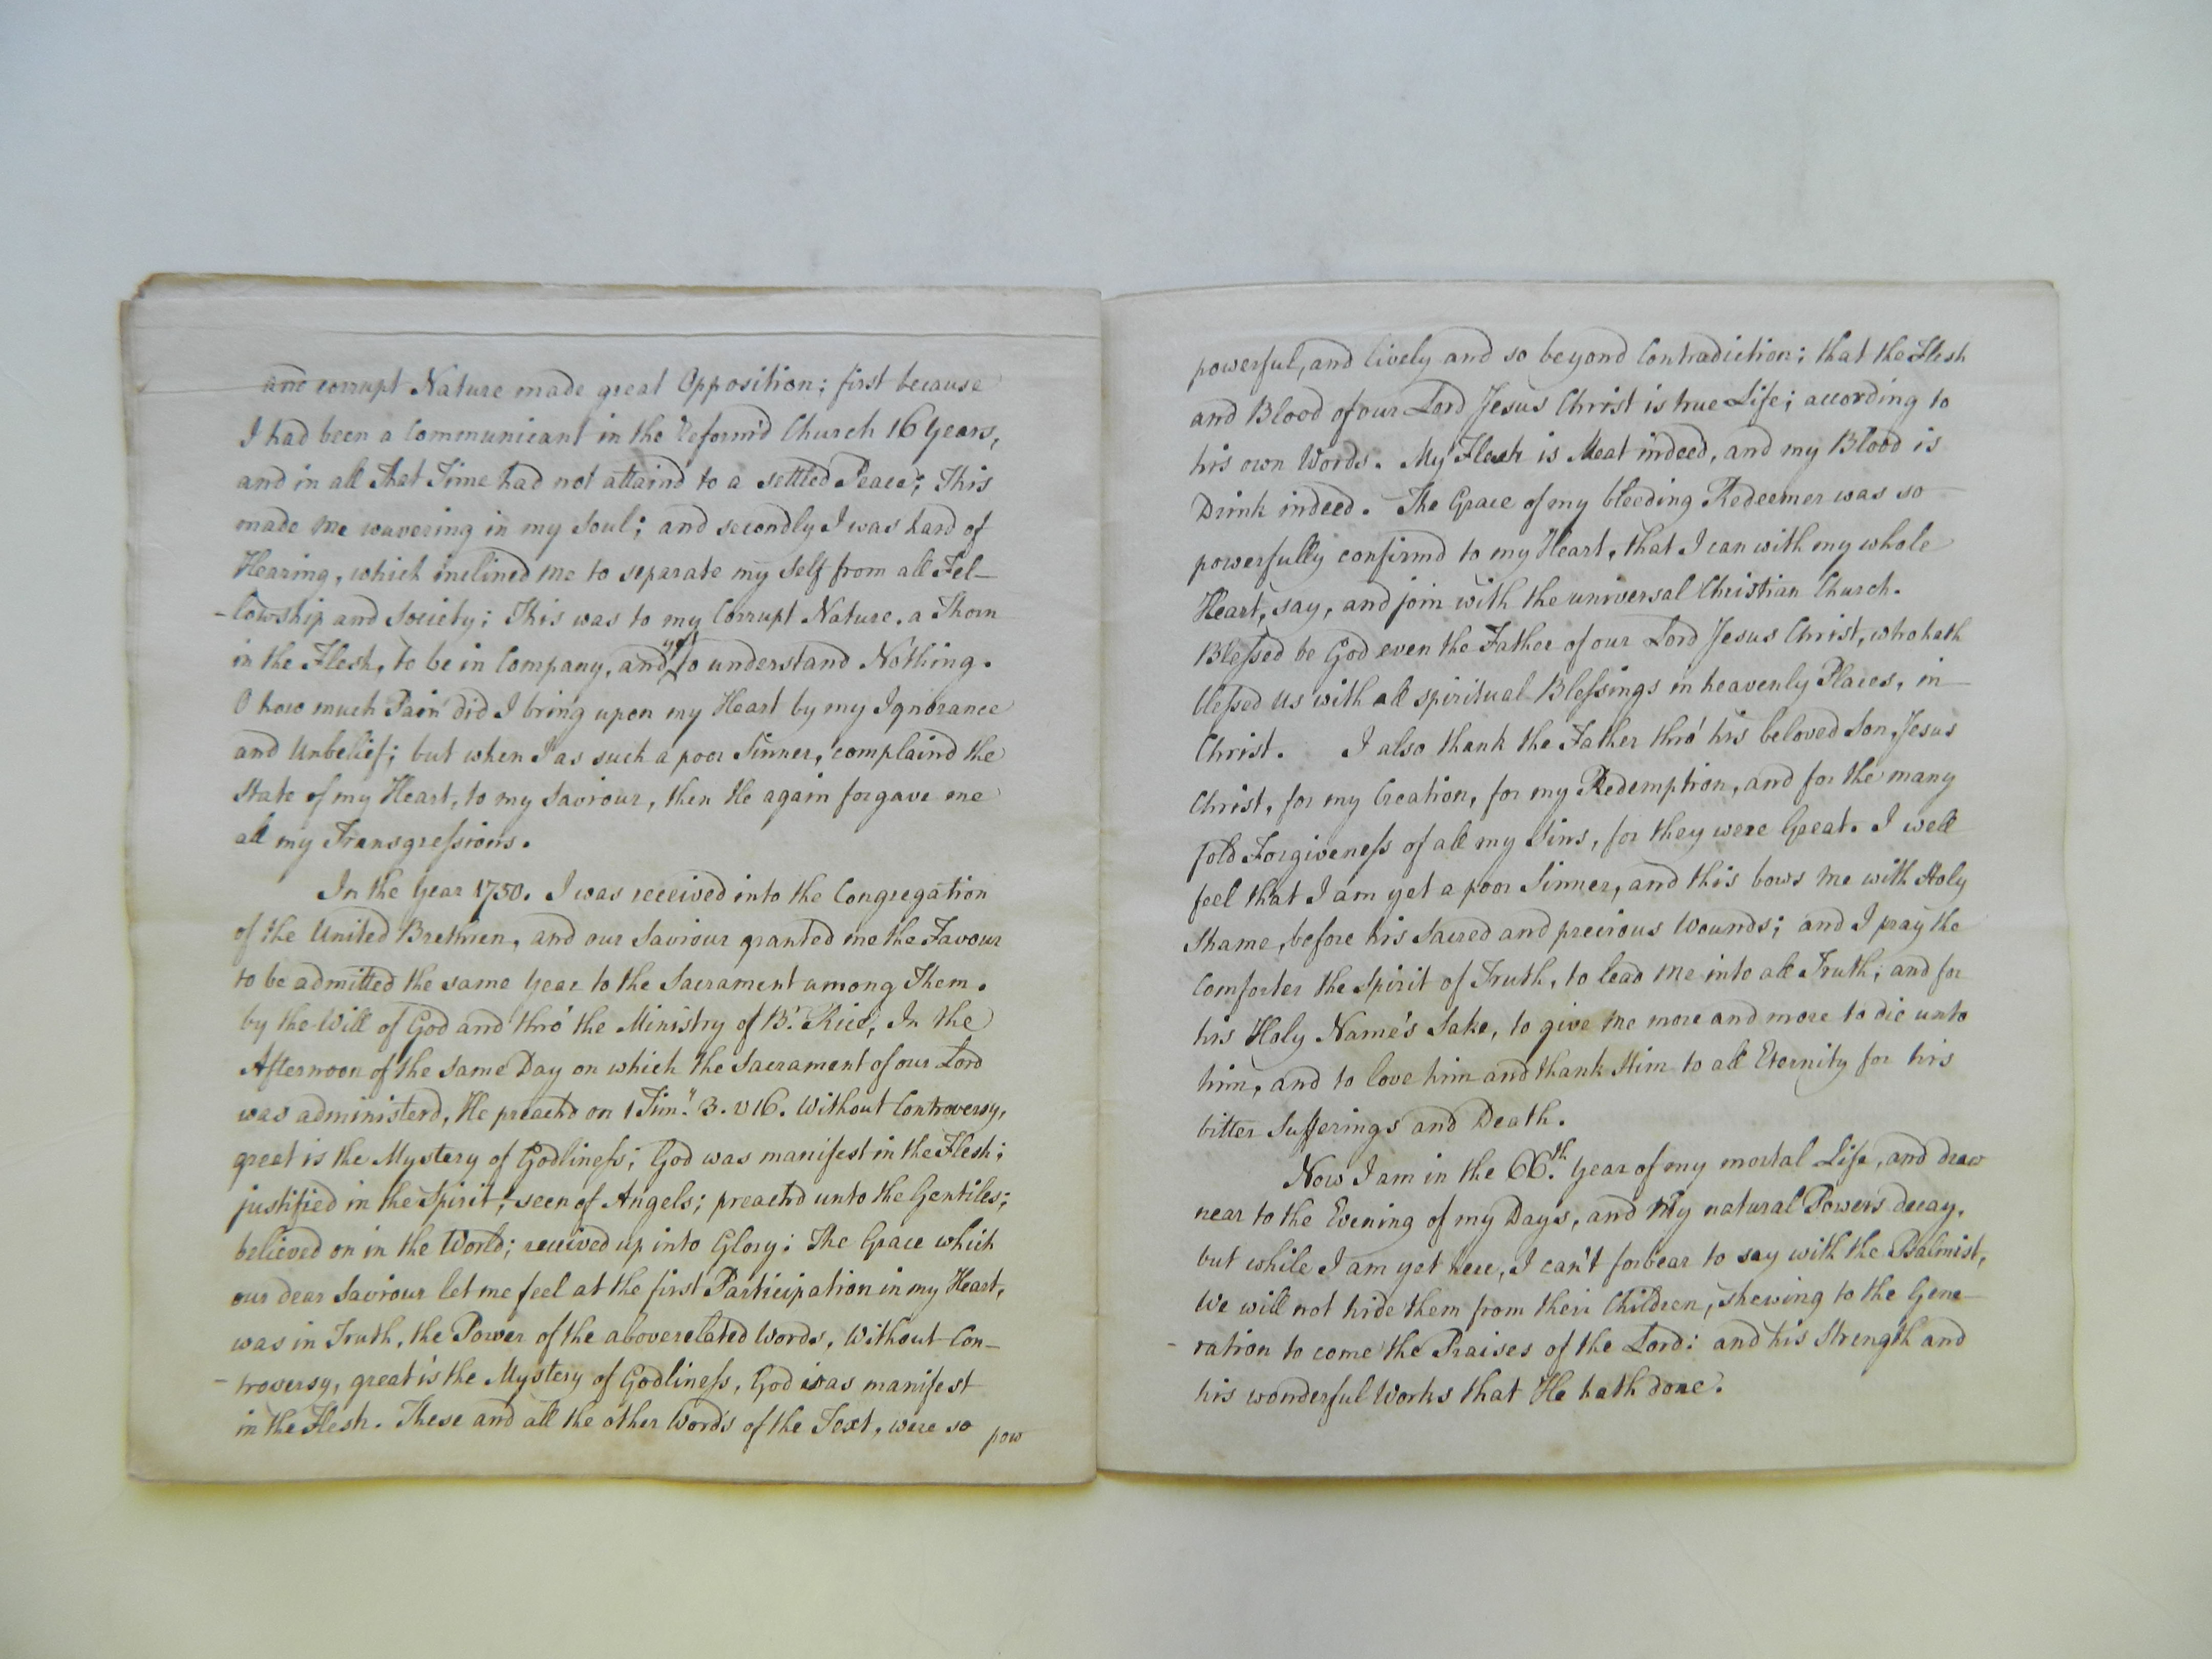 and corrupt Nature made great Opposition; first because
I had been a Communicant in the Reform'd Church 16 Years,
and in all that Time had not attain'd to a settled Peace; This
made me wavering in my Soul; and secondly I was hard of
Hearing, which inclined me to separate my Self from all Fel-
-lowship and Society; This was to my Corrupt Nature, a Thorn
in the Flesh, to be in Company, and yet to understand Nothing.
O how much Pain did I bring upon my Heart by my Ignorance
and Unbelief; but when I as such a poor Sinner, complaind the
State of my Heart, to my Saviour, then He again forgave me
all my Transgressions.
In the Year 1750. I was received into the Congregation
of the United Brethren, and our Saviour granted me the Favour
to be admitted the same Year to the Sacrament among Them.
by the Will of God and thro' the Ministry of Br. Rice, In the
Afternoon of the same Day on which the Sacrament of our Lord
was administerd, He preach'd on 1 Tim.y 3. v 16. Without Controversy,
great is the Mystery of Godliness; God was manifest in the Flesh;
justified in the Spirit; seen of Angels; preach'd unto the Gentiles;
believed on in the World; received up into Glory: The Grace which
our dear Saviour let me feel at the first Participation in my Heart,
was in Truth, the Power of the aboverelated Words, Without Con-
-troversy, great is the Mystery of Godliness, God was manifest
in the Flesh. These and all the other Words of the Text, were so
pow
powerful, and lively and so beyond Contradiction; that the Flesh
and Blood of our Lord Jesus Christ is true Life; according to
his own Words. My Flesh is Meat indeed, and my Blood is
Drink indeed. The Grace of my bleeding Redeemer was so
powerfully confirmd to my Heart, that I can with my whole
Heart, say, and join with the universal Christian Church.
Blessed be God even the Father of our Lord Jesus Christ, who hath
blessed us with all spiritual Blessings in heavenly Places, in
Christ. I also thank the Father thro' his beloved Son, Jesus
Christ, for my Creation, for my Redemption, and for the many
fold Forgiveness of all my Sins, for they were Great. I well
feel that I am yet a poor Sinner, and this bows me with Holy
Shame, before his Sacred and precious Wounds; and I pray the
Comforter the Spirit of Truth, to lead me into all Truth; and for
his Holy Name's Sake, to give me more and more to die unto
him, and to love him and thank Him to all Eternity for his
bitter Sufferings and Death.
Now I am in the 66.th Year of my mortal Life, and draw
near to the Evening of my Days, and My natural Powers decay.
but while I am yet here, I can't forbear to say with the Psalmist,
We will not hide them from their Children, shewing to the Gene-
-ration to come the Praises of the Lord: and his Strength and
his wonderful Works that He hath done.